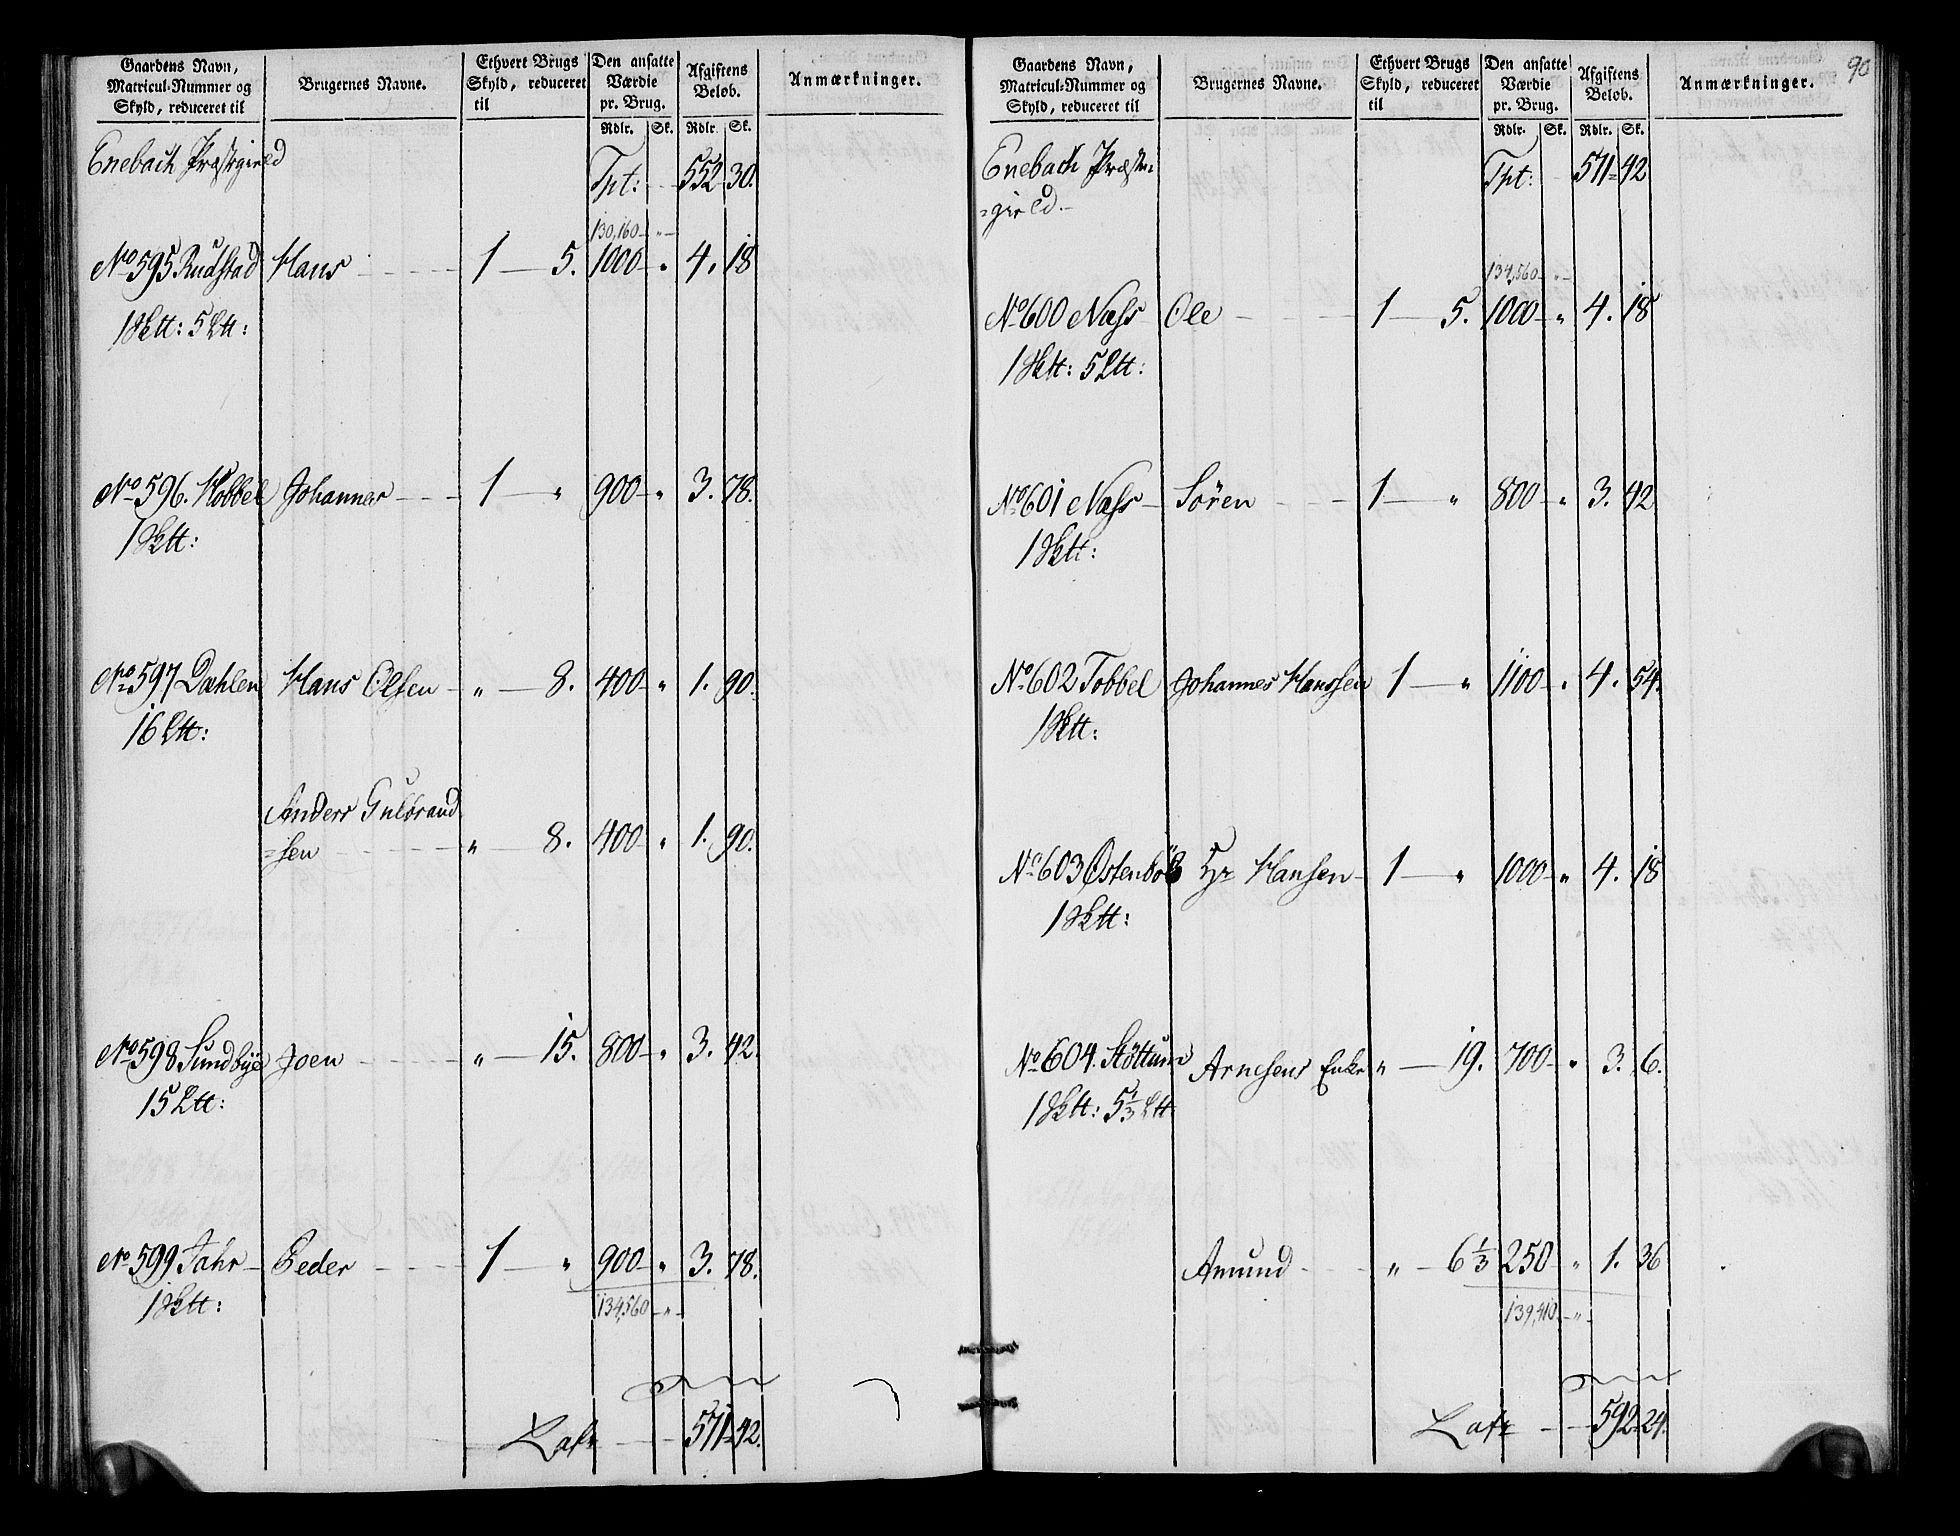 Gaardens Navn, Matricul-Nummer og Skyld, reduceret til | Brugernes Navne. | Ethvert Brugs Skyld, reduceret til | Den ansatte Værdie pr. Brug. | Afgiftens Beløb. | Anmærkninger.
Rdlr. | Sk. | Rdlr. | Sk.
Enebach Præstegield | Tpt: | 552 | 30.
130,160 - "
No 595 Rudstad | Hans | 1 — 5. | 1000 | " | 4. | 18
1 Sktt: 5 Ltt:
No 596. Kobbel | Johannes | 1 — " | 900 | " | 3. | 78.
1 Sktt:
No 597 Dahlen | Hans Olsen | " — 8. | 400 | " | 1. | 90.
16 Ltt:
Anders Gulbrand
=sen | " — 8. | 400 | " | 1. | 90.
No 598 Sundbye | Joen | " — 15. | 800 | " | 3. | 42.
15 Ltt:
No 599 Jahr | Peder | 1 — " | 900 | " | 3. | 78.
1 Sktt:
134,560 - "
Lats | 571 | 42.
90
Gaardens Navn, Matricul-Nummer og Skyld, reduceret til | Brugernes Navne. | Ethvert Brugs Skyld, reduceret til | Den ansatte Værdie pr. Brug. | Afgiftens Beløb. | Anmærkninger.
Rdlr. | Sk. | Rdlr. | Sk.
Enebach Præste= | Tpt: | 571 | 42
=gield
134,560 - "
No 600 Næss | Ole | 1 — 5. | 1000 | " | 4. | 18
1 Sktt: 5 Ltt:
No 601 Næss | Sören | 1 — " | 800 | " | 3. | 42
1 Sktt:
No 602 Tobbel | Johannes Hanssen | 1 — " | 1100 | " | 4. | 54.
1 Sktt:
No 603 Østenböl | Hr Hansen | 1 — " | 1000 | " | 4. | 18
1 Sktt:
No 604. Stöttum | Arnesens Enke | " — 19. | 700 | " | 3. | 6.
1 Sktt: 5 1/3 Ltt
Amund | " — 6 1/3 | 250 | " | 1. | 36
139,410 - "
Lats | 592 | 24.